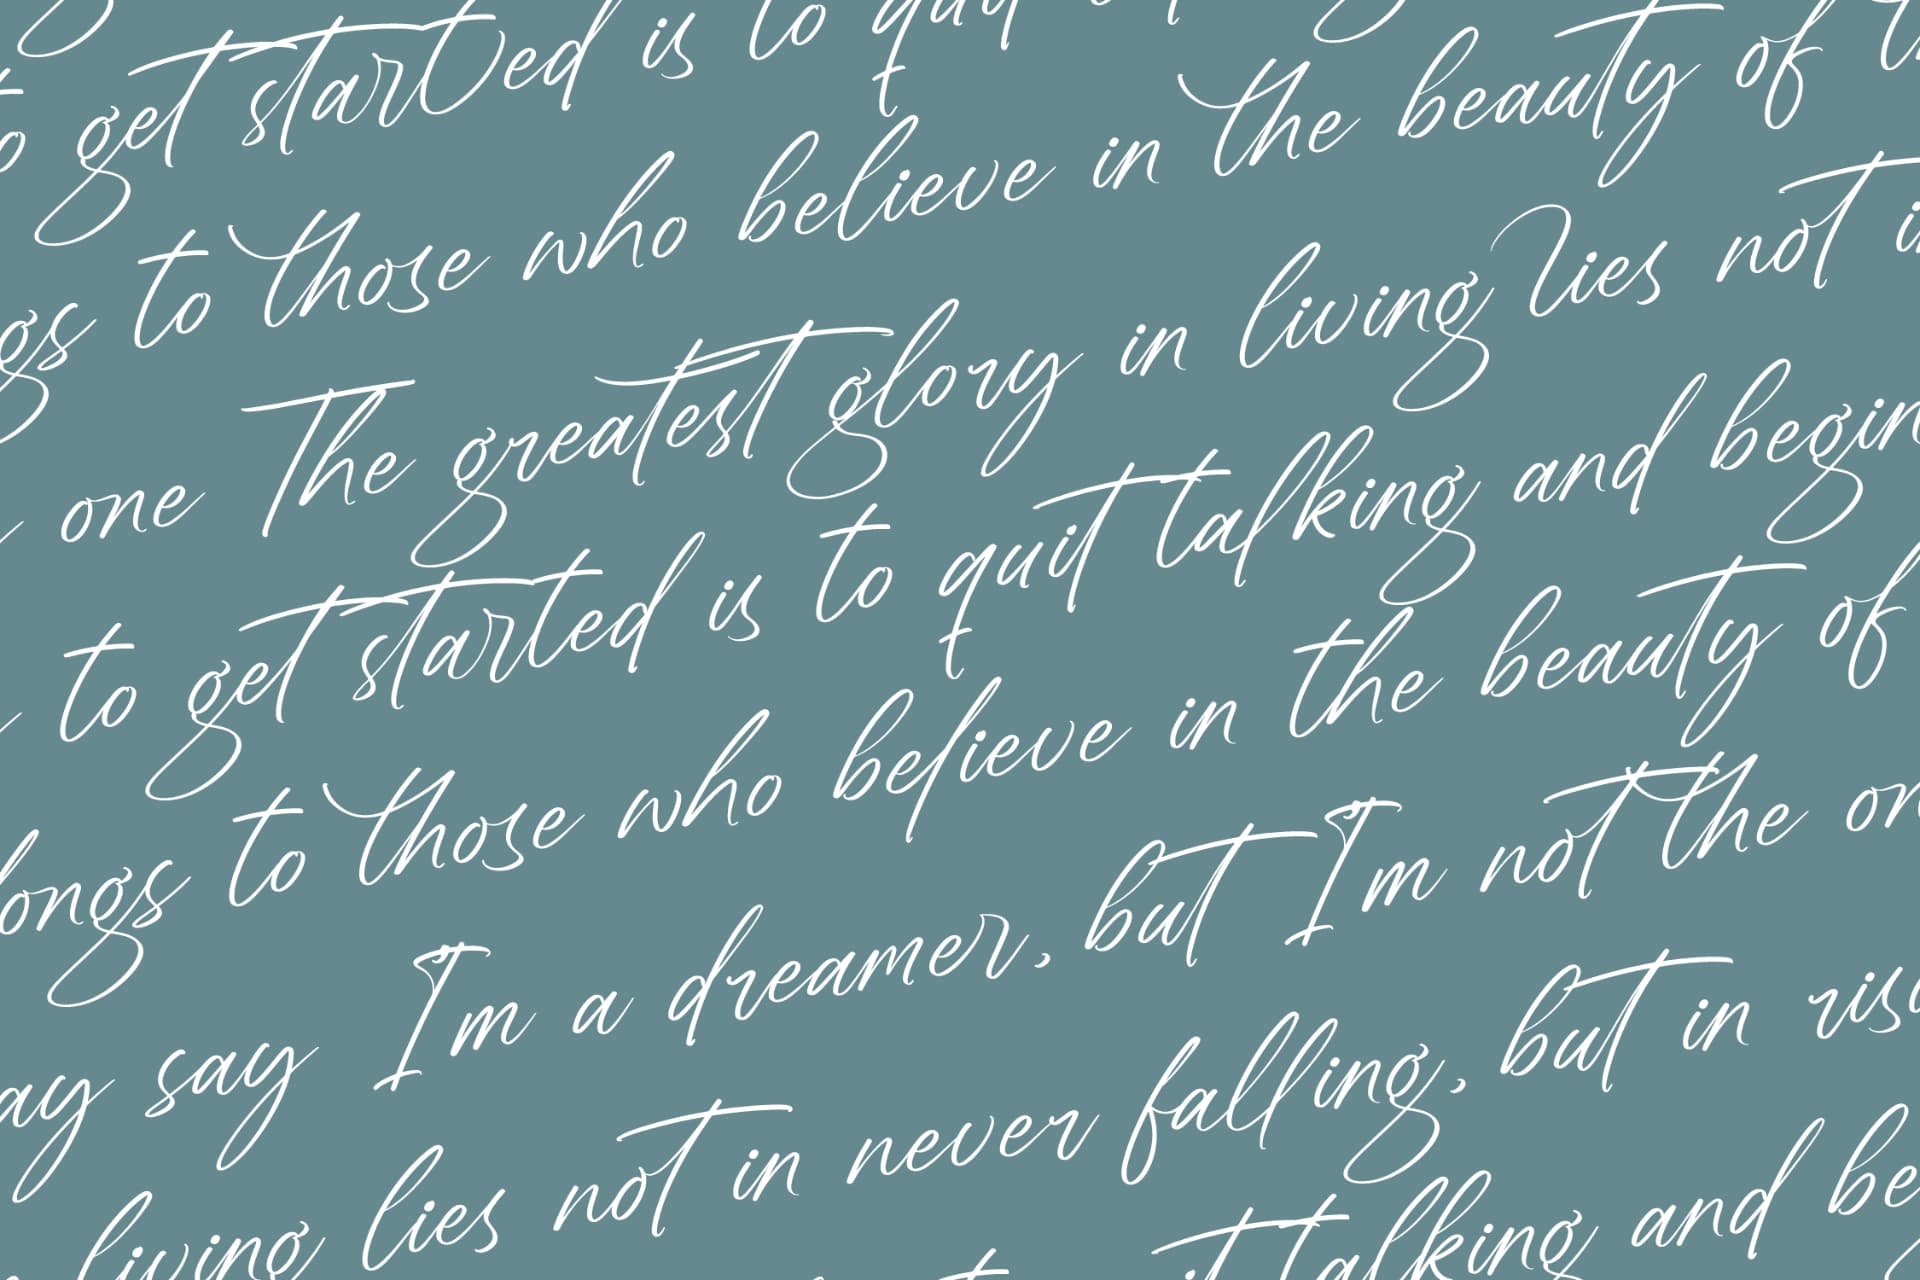 to get started is to
to those who believe in the beauty of
one The greatest glory in living lies not
to get started is to quit talking and begin
to those who believe in the beauty of
say I'm a dreamer, but I'm not the
living lies not in never falling, but in
talking and